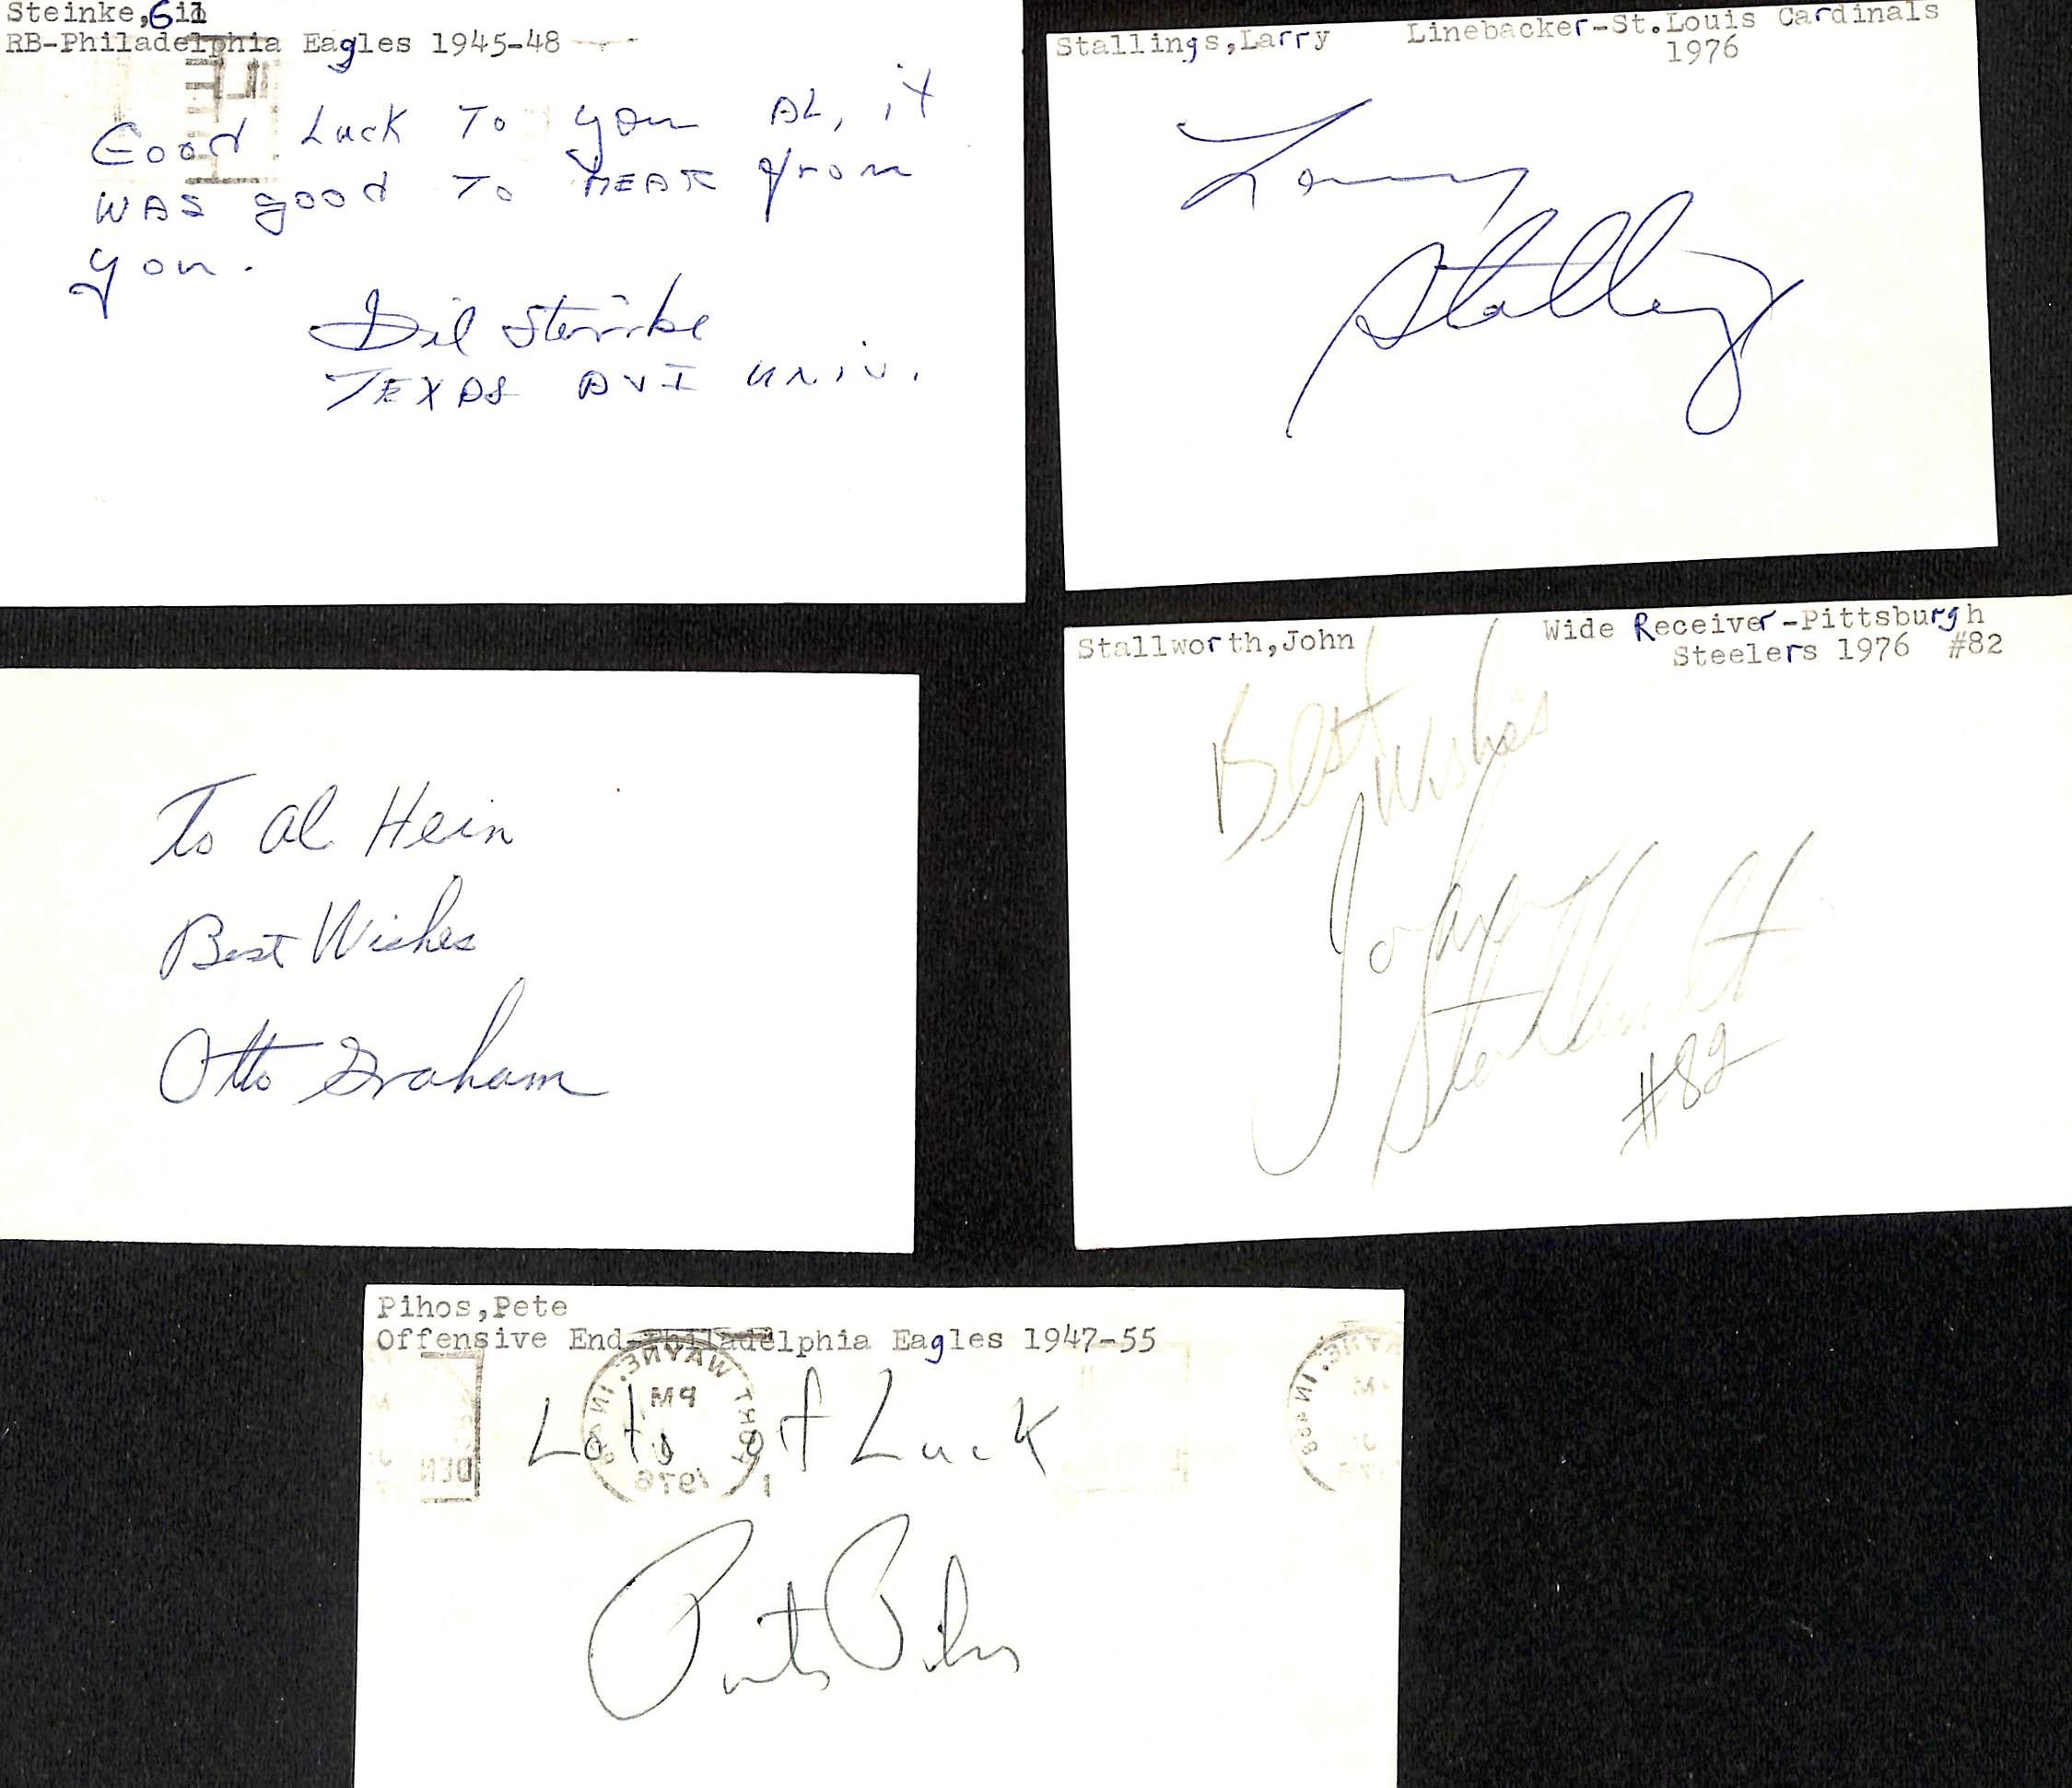 Steinke,Gil
RB-Philadelphia Eagles 1945-48
Good Luck To you AL, it
WAS good To HEAR from
you.
Gil Steinke
TEXAS A&I univ.
Stallings,Larry Linebacker-St.Louis Cardinals
1976
Larry
Stallings
To Al Hein
Best Wishes
Otto Graham
Stallworth,John Wide Receiver-Pittsburgh
Steelers 1976 #82
Best
Wishes
John
Stallworth
#82
Pihos,Pete
Offensive End-Philadelphia Eagles 1947-55
FORT WAYNE, IN
PM
1976
Lots of Luck
Pete Pihos